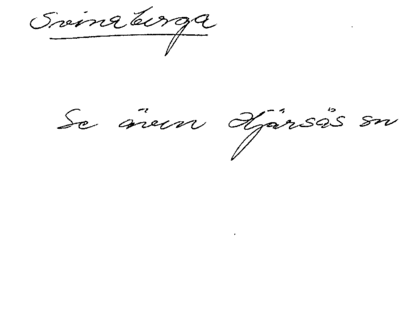 Svinaberga
Se även Hjärsås sn